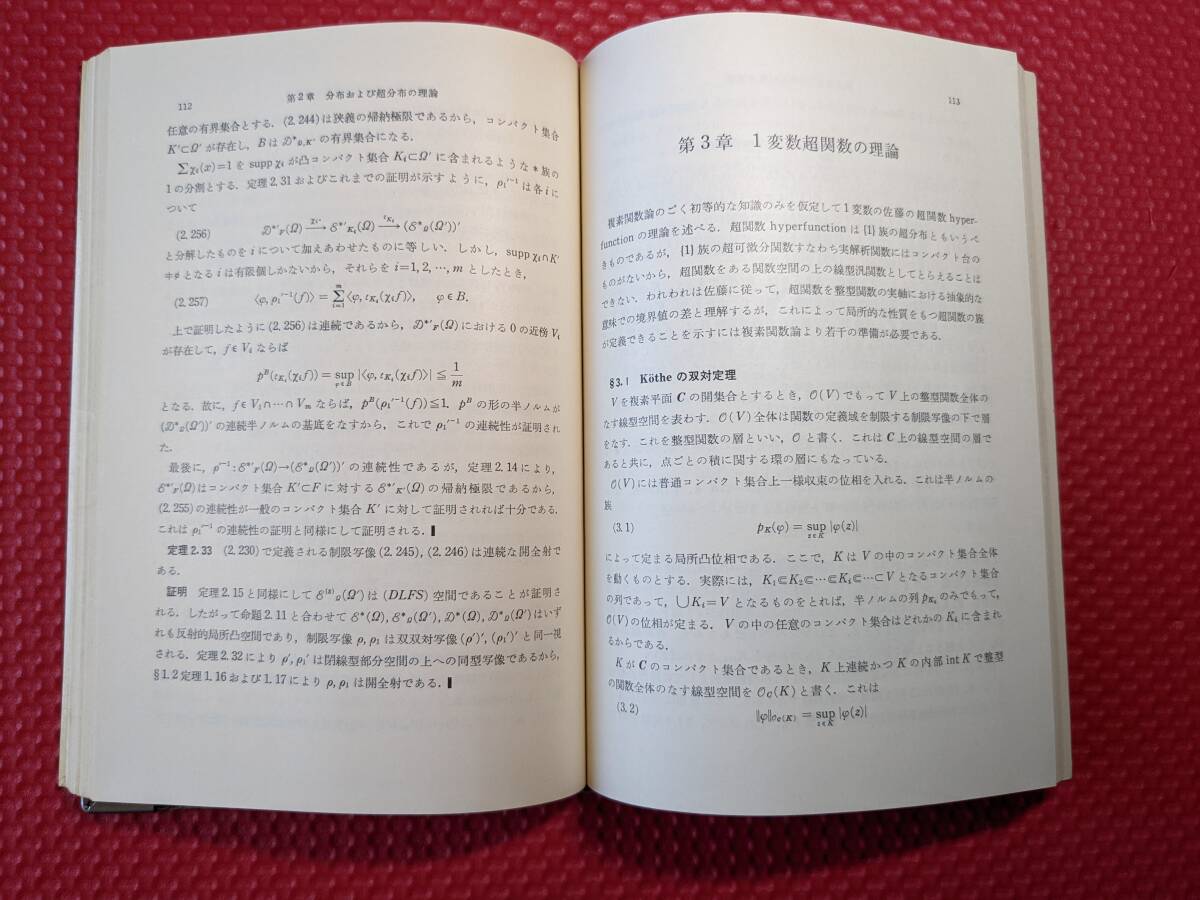 112
第2章 分布および超分布の理論
任意の有界集合とする.(2,244)は狭義の帰納極限であるから,コンパクト集合
K'⊂Ω'が存在し,Bは𝒟*_{Ω,K'}の有界集合になる.
∑χ_i(x)=1をsupp χ_iが凸コンパクト集合K_i⊂Ω'に含まれるような*族の
1の分割とする.定理2.31およびこれまでの証明が示すように,ρ_1'^{-1}は各iに
ついて
(2,256) 𝒟*'_F(Ω) \xrightarrow{χ_i·} ℰ*'_{K_i}(Ω) \xrightarrow{ι_{K_i}} (ℰ*_Ω(Ω'))'
と分解したものをiについて加えあわせたものに等しい.しかし,supp χ_i∩K'
≠∅となるiは有限個しかないから,それらをi=1, 2, …, mとしたとき,
(2,257) ⟨φ, ρ_1'^{-1}(f)⟩ = \sum_{i=1}^{m}⟨φ, ι_{K_i}(χ_i f)⟩, φ∈B.
上で証明したように(2,256)は連続であるから,𝒟*'_F(Ω)における0の近傍V_i
が存在して,f∈V_iならば
p^B(ι_{K_i}(χ_i f)) = \sup_{φ∈B} |⟨φ, ι_{K_i}(χ_i f)⟩| ≦ \frac{1}{m}
となる.故に,f∈V_1∩…∩V_mならば,p^B(ρ_1'^{-1}(f))≦1. p^Bの形の半ノルムが
(𝒟*_Ω(Ω'))'の連続半ノルムの基底をなすから,これでρ_1'^{-1}の連続性が証明され
た.
最後に,ρ^{-1}: ℰ*'_F(Ω)→(ℰ*_Ω(Ω'))'の連続性であるが,定理2.14により,
ℰ*'_F(Ω)はコンパクト集合K'⊂Fに対するℰ*'_{K'}(Ω)の帰納極限であるから,
(2,255)の連続性が一般のコンパクト集合K'に対して証明されれば十分である.
これはρ_1'^{-1}の連続性の証明と同様にして証明される.▌
定理2.33 (2,230)で定義される制限写像(2,245),(2,246)は連続な開全射で
ある.
証明 定理2.15と同様にしてℰ^{(s)}_Ω(Ω')は(DLFS)空間であることが証明さ
れる.したがって命題2.11と合わせてℰ*(Ω), ℰ*_Ω(Ω'), 𝒟*(Ω), 𝒟*_Ω(Ω')はいず
れも反射的局所凸空間であり,制限写像ρ, ρ_1は双双対写像(ρ')', (ρ_1')'と同一視
される.定理2.32によりρ', ρ_1'は閉線型部分空間の上への同型写像であるから,
§1.2定理1.16および1.17によりρ, ρ_1は開全射である.▌
113
第3章 1変数超関数の理論
複素関数論のごく初等的な知識のみを仮定して1変数の佐藤の超関数hyper-
functionの理論を述べる.超関数hyperfunctionは{1}族の超分布ともいうべ
きものであるが,{1}族の超可微分関数すなわち実解析関数にはコンパクト台の
ものがないから,超関数をある関数空間の上の線型汎関数としてとらえることは
できない.われわれは佐藤に従って,超関数を整型関数の実軸における抽象的な
意味での境界値の差と理解するが,これによって局所的な性質をもつ超関数の族
が定義できることを示すには複素関数論より若干の準備が必要である.
§3.1 Kötheの双対定理
Vを複素平面Cの開集合とするとき,𝒪(V)でもってV上の整型関数全体の
なす線型空間を表わす.𝒪(V)全体は関数の定義域を制限する制限写像の下で層
をなす.これを整型関数の層といい,𝒪と書く.これはC上の線型空間の層で
あると共に,点ごとの積に関する環の層にもなっている.
𝒪(V)には普通コンパクト集合上一様収束の位相を入れる.これは半ノルムの
族
(3.1) p_K(φ) = \sup_{z∈K} |φ(z)|
によって定まる局所凸位相である.ここで,KはVの中のコンパクト集合全体
を動くものとする.実際には,K_1⋐K_2⋐…⋐K_i⋐…⊂Vとなるコンパクト集合
の列であって,∪K_i=Vとなるものをとれば,半ノルムの列p_{K_i}のみでもって,
𝒪(V)の位相が定まる.Vの中の任意のコンパクト集合はどれかのK_iに含まれ
るからである.
KがCのコンパクト集合であるとき,K上連続かつKの内部int Kで整型
の関数全体のなす線型空間を𝒪_C(K)と書く.これは
(3.2) ‖φ‖_{𝒪_C(K)} = \sup_{z∈K} |φ(z)|